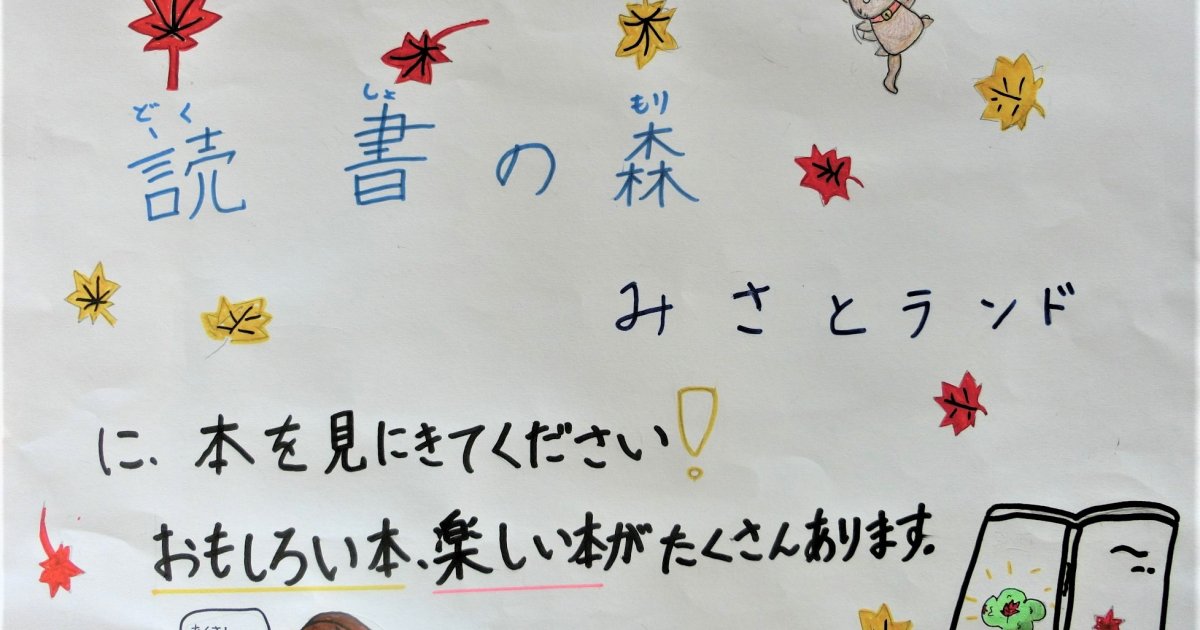 どくしょ もり
読書の森
みさとランド
に、本を見にきてください!
おもしろい本、楽しい本がたくさんあります。